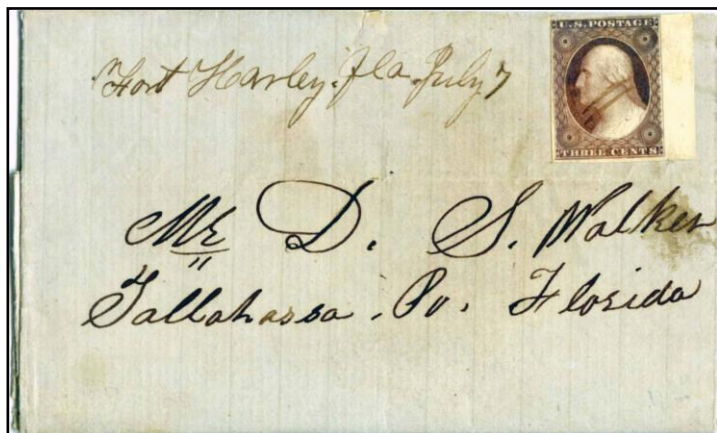 U.S. POSTAGE
THREE CENTS
Fort Harley. Fla. July 7
Mr D. S. Walker
Tallahassa. Po. Florida